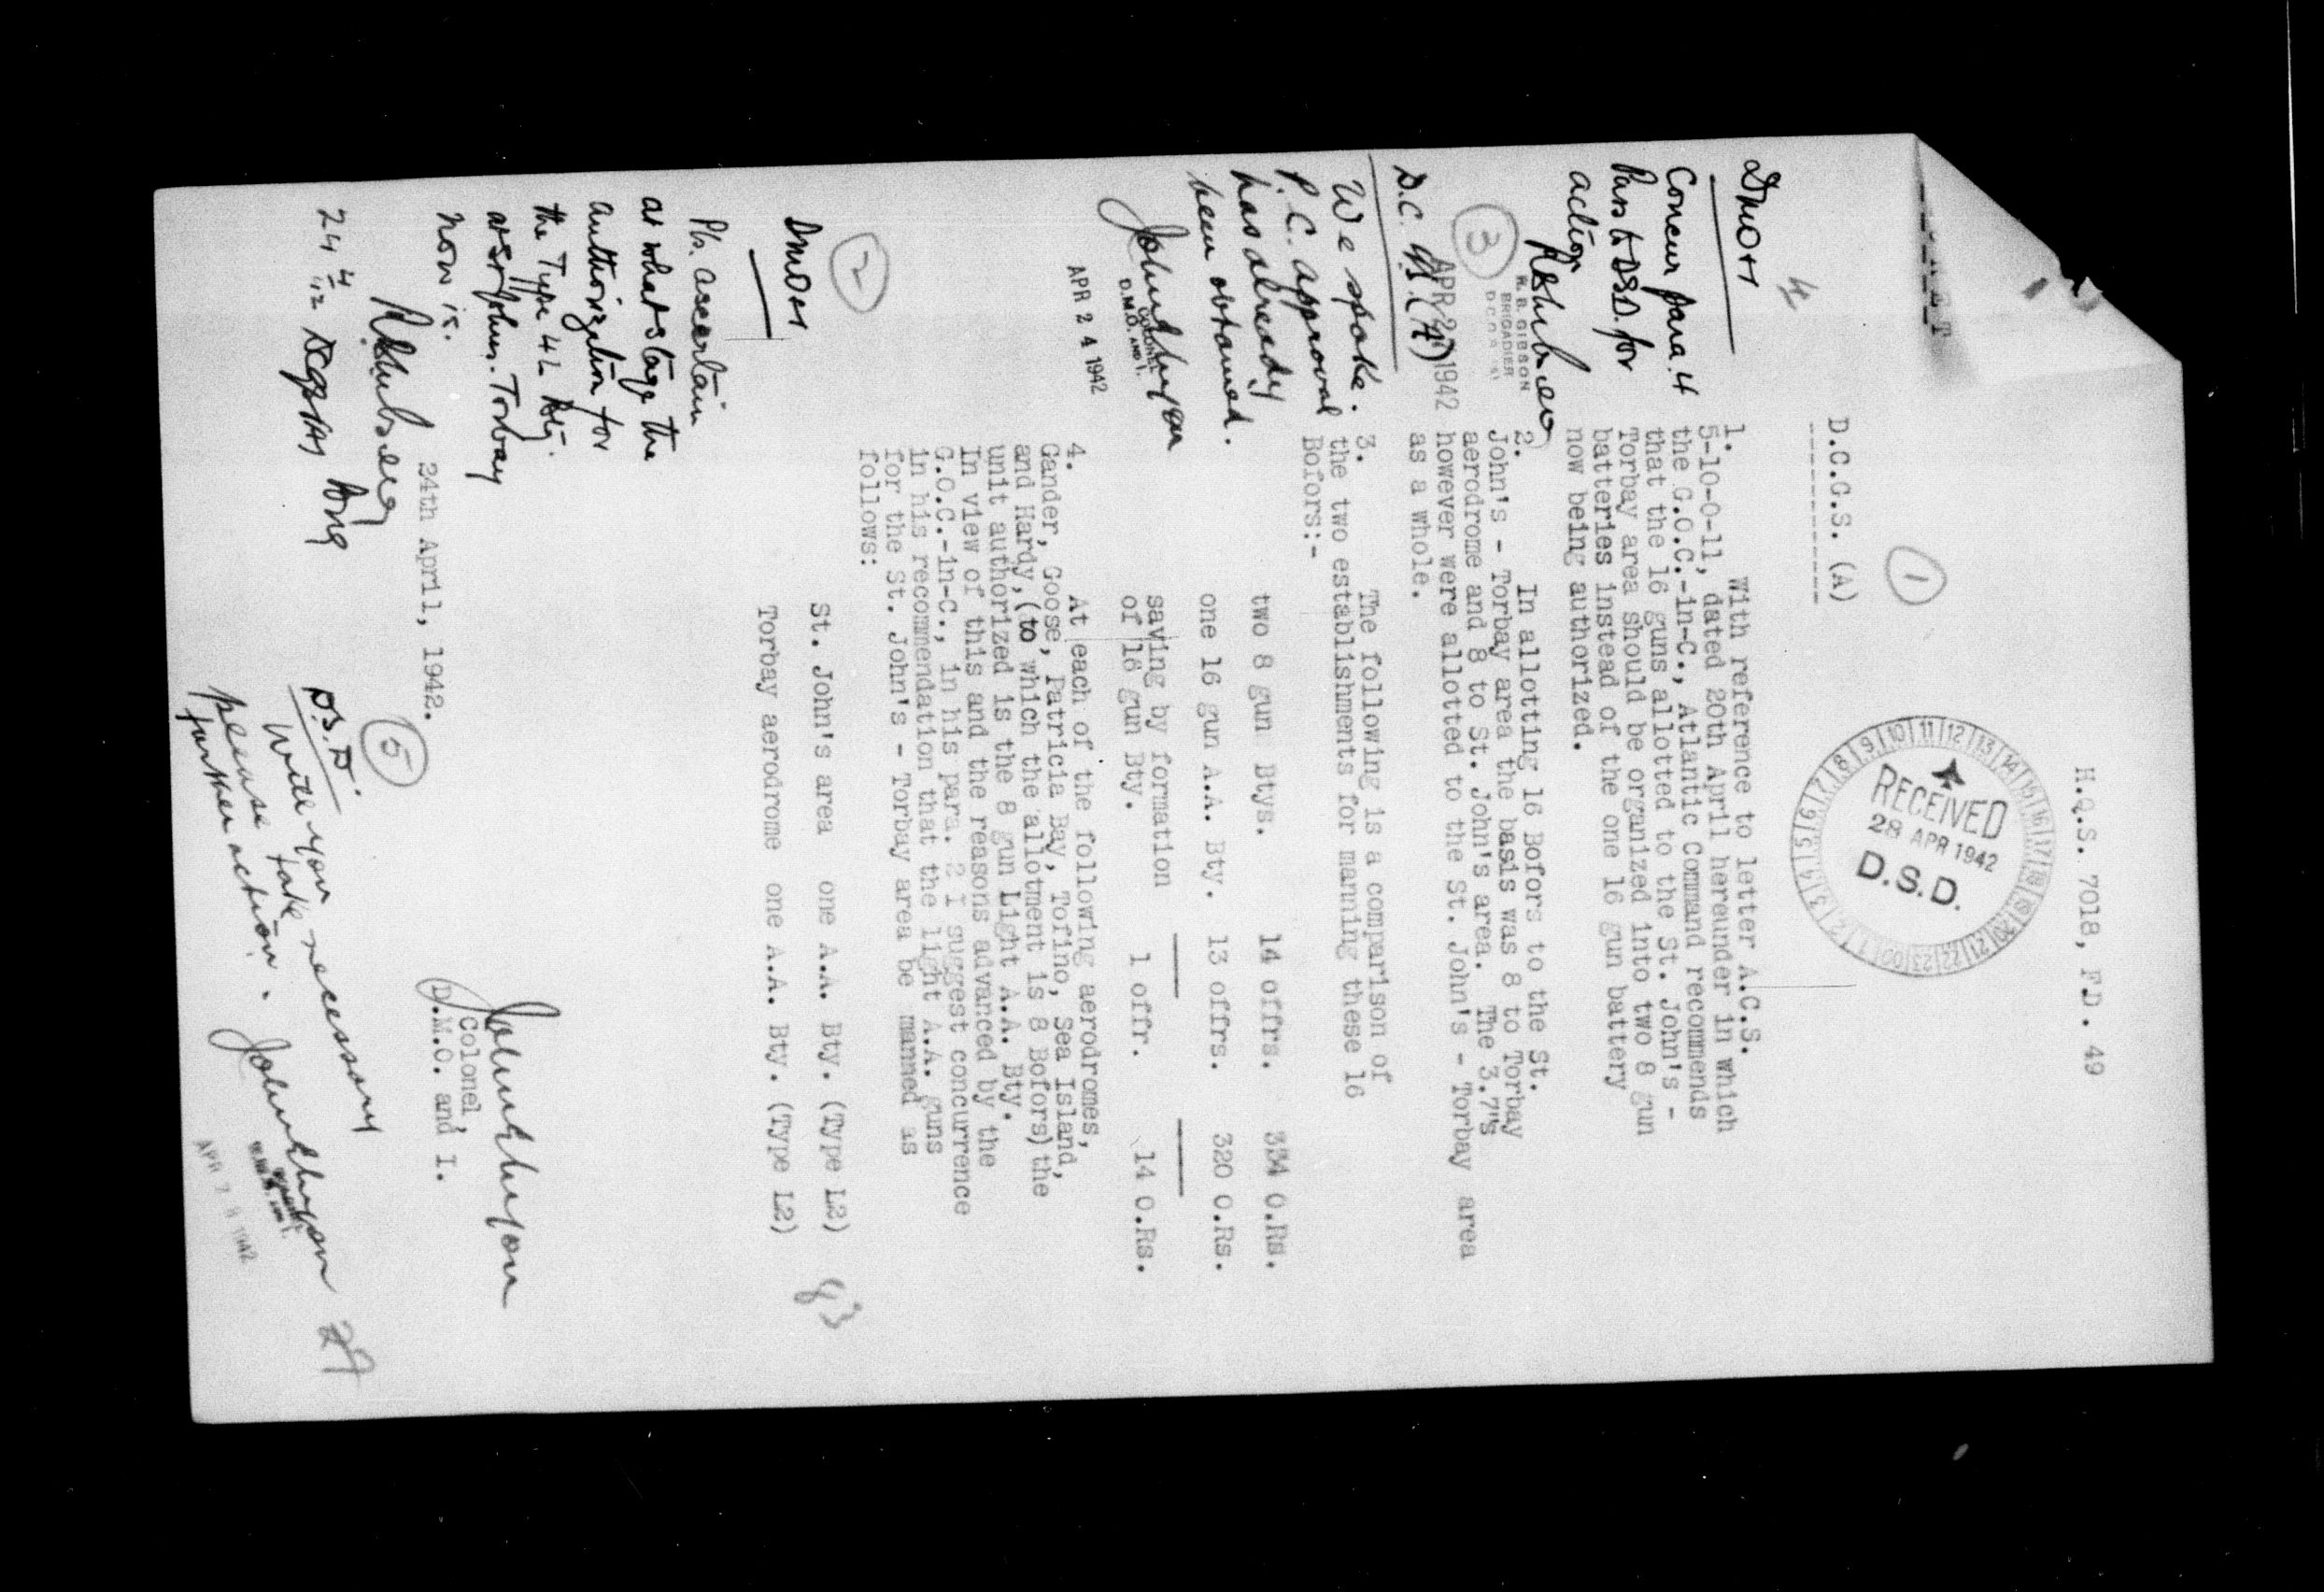 H.Q.S. 7018, F.D. 49
RECEIVED
28 APR 1942
D.S.D.
1
D.C.G.S. (A)
1. With reference to letter A.C.S.
5-10-0-11, dated 20th April hereunder in which
the G.O.C.-in-C., Atlantic Command recommends
that the 16 guns allotted to the St. John's -
Torbay area should be organized into two 8 gun
batteries instead of the one 16 gun battery
now being authorized.
2. In allotting 16 Bofors to the St.
John's - Torbay area the basis was 8 to Torbay
aerodrome and 8 to St. John's area. The 3.7"s
however were allotted to the St. John's - Torbay area
as a whole.
3. The following is a comparison of
the two establishments for manning these 16
Bofors:-
two 8 gun Btys. 14 offrs. 334 O.Rs.
one 16 gun A.A. Bty. 13 offrs. 320 O.Rs.
saving by formation
of 16 gun Bty. 1 offr. 14 O.Rs.
4. At each of the following aerodromes,
Gander, Goose, Patricia Bay, Tofino, Sea Island,
and Hardy, (to which the allotment is 8 Bofors) the
unit authorized is the 8 gun Light A.A. Bty.
In view of this and the reasons advanced by the
G.O.C.-in-C., in his para. 2 I suggest concurrence
in his recommendation that the light A.A. guns
for the St. John's - Torbay area be manned as
follows:
St. John's area one A.A. Bty. (Type L2)
Torbay aerodrome one A.A. Bty. (Type L2)
83
Colonel,
D.M.O. and I.
24th April, 1942.
2
DMO+I
Pls. ascertain
at what stage the
authorization for
the Type 4L Bty.
at St. Johns. Torbay
now is.
24 4/42
3
D.C.G.S.(A)
We spoke.
P.C. approval
has already
been obtained.
COLONEL
D.M.O. AND I.
APR 24 1942
4
DMO+I
Concur para. 4
Pass to DSD. for
action
R. B. GIBSON
BRIGADIER
D.C.G.S. (A)
1942
5
D.S.D.
Will you
please take necessary
further action.
27